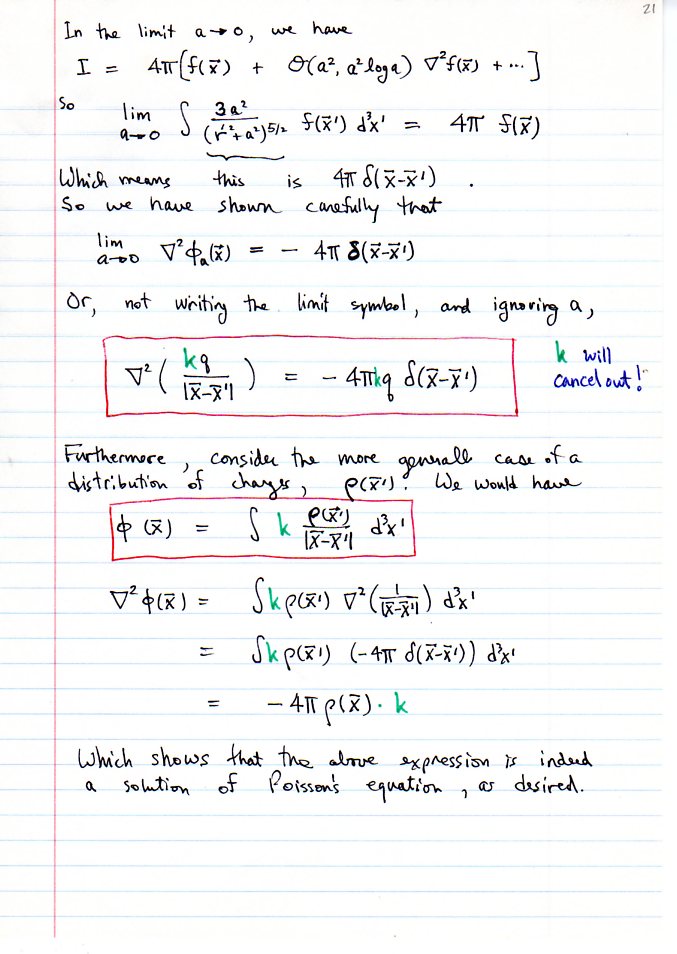 21
In the limit a→0, we have
I = 4π[f(x⃗) + O(a², a² log a) ∇²f(x⃗) + ⋯]
So lim a→0 ∫ 3a²/(r'²+a²)^5/2 f(x⃗') d³x' = 4π f(x⃗)
Which means this is 4π δ(x⃗-x⃗') .
So we have shown carefully that
lim a→0 ∇²ϕₐ(x⃗) = - 4π δ(x⃗-x⃗')
Or, not writing the limit symbol, and ignoring a,
∇² ( kq / |x⃗-x⃗'| ) = - 4πkq δ(x⃗-x⃗')
k will
cancel out!
Furthermore, consider the more generall case of a
distribution of charges, ρ(x⃗'). We would have
ϕ (x⃗) = ∫ k ρ(x⃗')/|x⃗-x⃗'| d³x'
∇² ϕ(x⃗) = ∫ k ρ(x⃗') ∇² (1/|x⃗-x⃗'|) d³x'
= ∫ k ρ(x⃗') (-4π δ(x⃗-x⃗')) d³x'
= - 4π ρ(x⃗) · k
Which shows that the above expression is indeed
a solution of Poisson's equation, as desired.